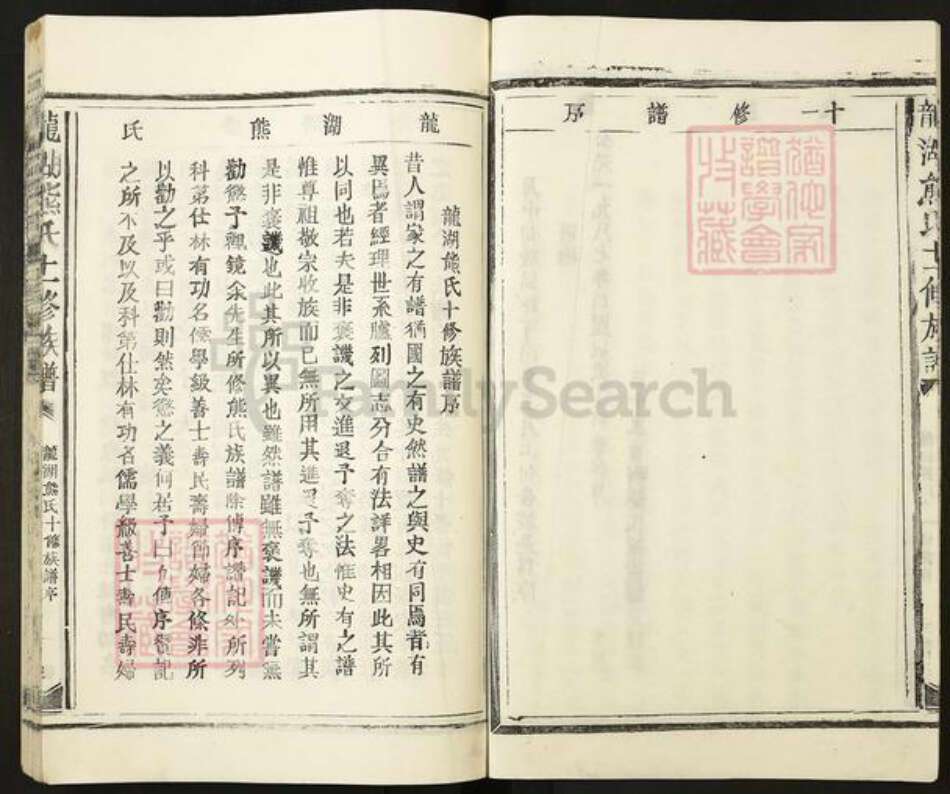 十一修譜序
龍湖熊氏
龍湖熊氏十修族譜序
昔人謂家之有譜猶國之有史然譜之與史有同焉者有
異焉者經理世系臚列圖志分合有法詳畧相因此其所
以同也若夫是非褒譏之文進退予奪之法惟史有之譜
惟尊祖敬宗收族而已無所用其進退予奪也無所謂其
是非褒譏也此其所以異也雖然譜雖無褒譏而未嘗無
勸懲予觀鏡 先生所修熊氏族譜除傳序譜記外所列
科第仕林有功名 學級善士壽民壽婦節婦各條非所
以勸之乎或曰勸則然矣懲之義何居予曰 傳序 記
之所不及以及科第仕林有功名儒學級善士壽民壽婦
龍湖熊氏十一修族譜
龍湖熊氏十修族譜序
龍湖熊氏十一修族譜
猶他家
譜學會
收藏
猶他家
譜學會
收藏
FamilySearch